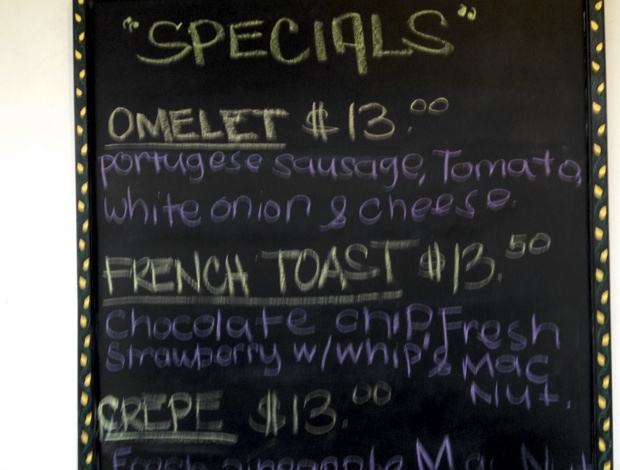 "SPECIALS"
OMELET $13.00
portugese sausage, Tomato,
white onion & cheese.
FRENCH TOAST $13.50
Chocolate chip, Fresh
Strawberry w/whip & Mac
Nut.
CREPE $13.00
Fresh pineapple Mac Nut